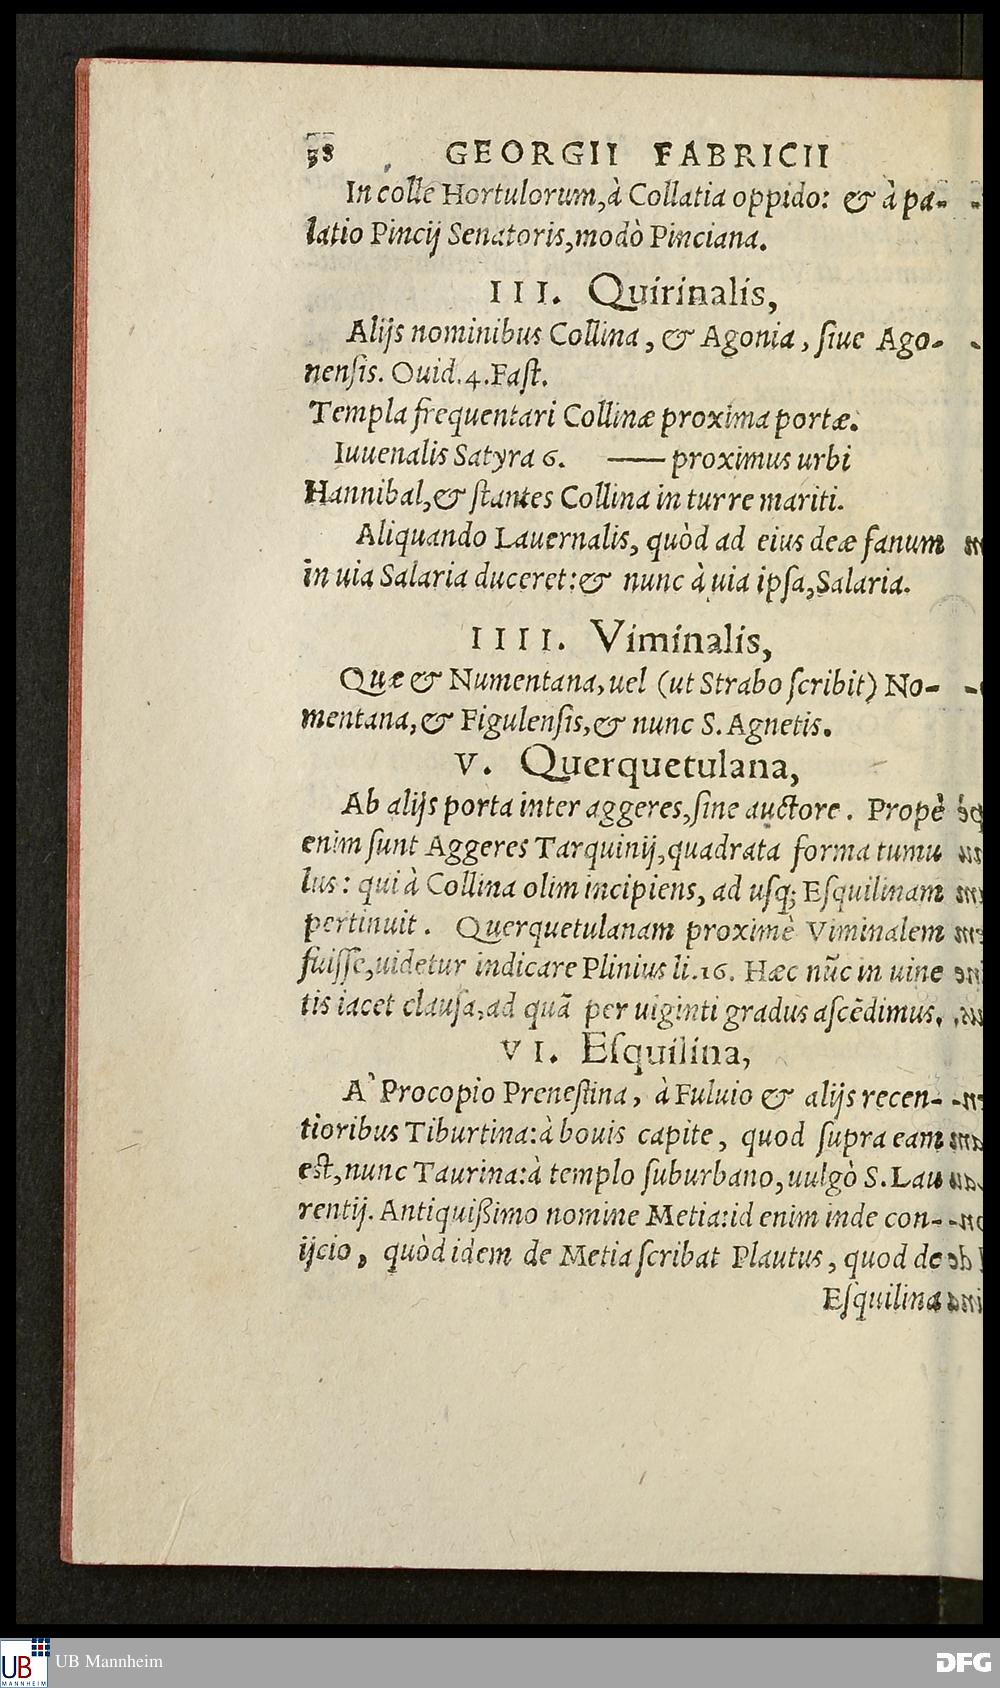 38 GEORGII FABRICII
In colle Hortulorum, à Collatia oppido: & à pa-
latio Pincij Senatoris, modò Pinciana.
III. Quirinalis,
Alijs nominibus Collina, & Agonia, ſiue Ago-
nenſis. Ouid. 4. Faſt.
Templa frequentari Collinæ proxima portæ.
Iuuenalis Satyra 6. —— proximus urbi
Hannibal, & ſtantes Collina in turre mariti.
Aliquando Lauernalis, quòd ad eius deæ fanum
in uia Salaria duceret: & nunc à uia ipſa, Salaria.
IIII. Viminalis,
Quæ & Numentana, uel (ut Strabo ſcribit) No-
mentana, & Figulenſis, & nunc S. Agnetis.
V. Querquetulana,
Ab alijs porta inter aggeres, ſine auctore. Propè
enim ſunt Aggeres Tarquinij, quadrata forma tumu
lus: qui à Collina olim incipiens, ad uſq; Eſquilinam
pertinuit. Querquetulanam proximè Viminalem
fuiſſe, uidetur indicare Plinius li. 16. Hæc nũc in uine
tis iacet clauſa, ad quã per uiginti gradus aſcẽdimus.
VI. Eſquilina,
A` Procopio Preneſtina, à Fuluio & alijs recen-
tioribus Tiburtina: à bouis capite, quod ſupra eam
est, nunc Taurina: à templo ſuburbano, uulgò S. Lau
rentij. Antiquißimo nomine Metia: id enim inde con-
ijcio, quòd idem de Metia ſcribat Plautus, quod de
Eſquilina
UB Mannheim
UB
MANNHEIM
DFG